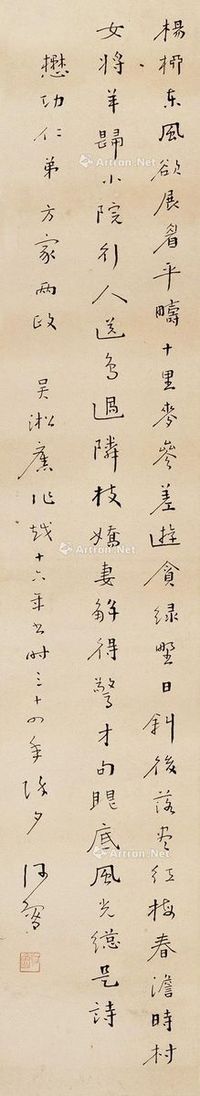 楊柳東風欲展眉平疇十里麥參差遊貪綠野日斜後落盡紅梅春澹時村
女將羊歸小院引人送鳥過隣枝嬌妻解得驚才句眼底風光總是詩
懋功仁弟方家兩政 吳淞舊作越十六年書時三十四年除夕
Artron.Net
Artron.Net
Artron.Net
Artron.Net